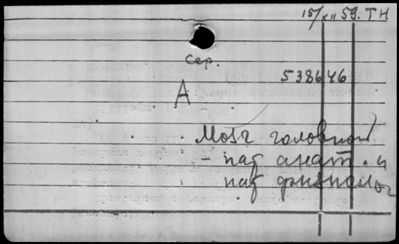 15/XII 59. ТН
Сер.
538646
А
Мозг головной
- пат анат. и
пат физиолог